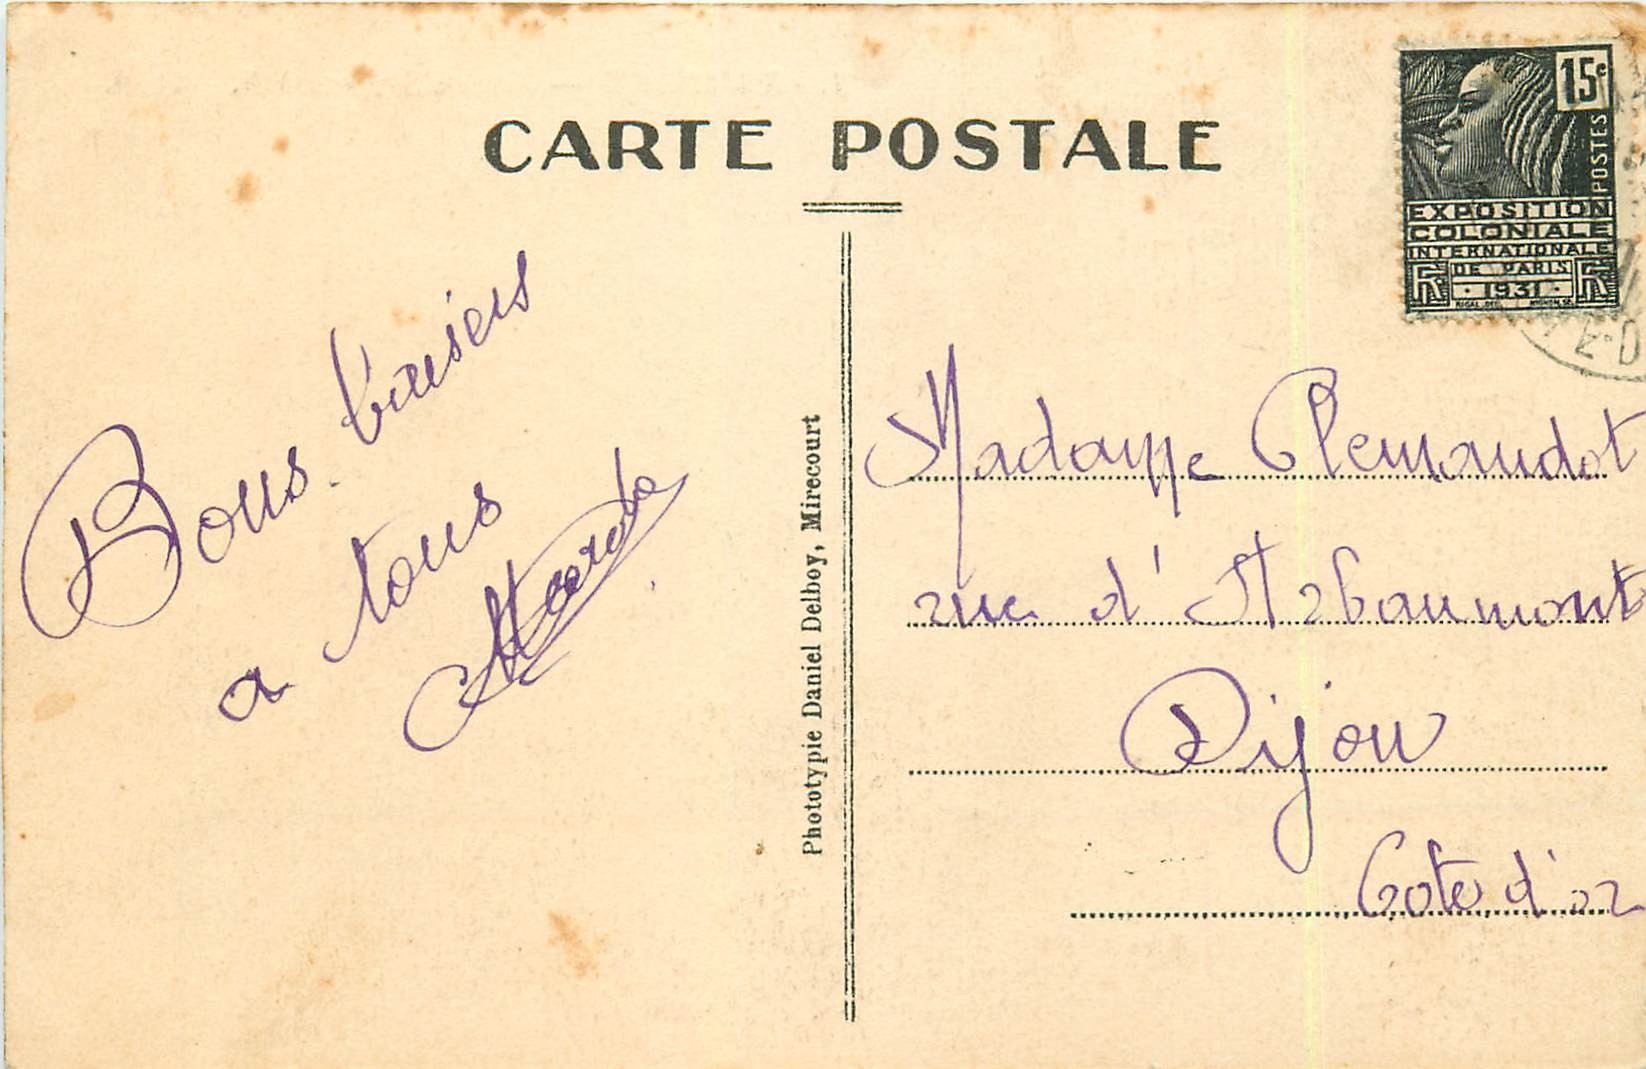 CARTE POSTALE
15c
POSTES
EXPOSITION
COLONIALE
INTERNATIONALE
DE PARIS
RF 1931 RF
E-D
Bons baisers
a tous
Phototypie Daniel Delboy, Mirecourt
Madame Clemaudot
rue d'
Dijon
Cote d'or